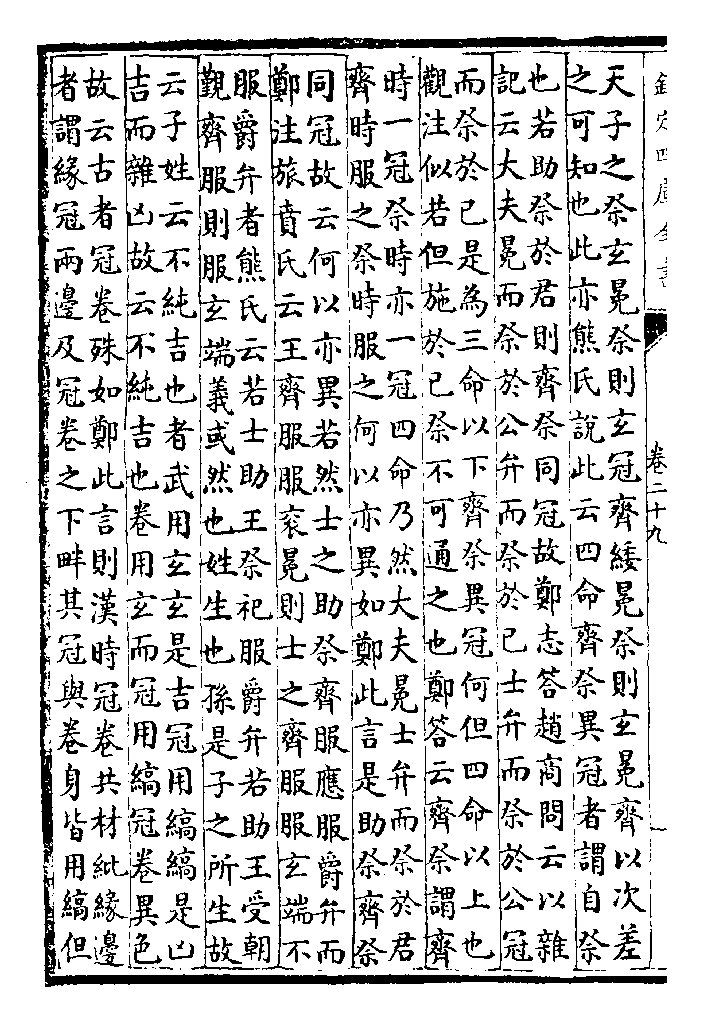 欽定四庫全書
卷二十九
天子之祭玄冕祭則玄冠齊緌冕祭則玄冕齊以次差
之可知也此亦熊氏說此云四命齊祭異冠者謂自祭
也若助祭於君則齊祭同冠故鄭志答趙商問云以雜
記云大夫冕而祭於公弁而祭於已士弁而祭於公冠
而祭於已是為三命以下齊祭異冠何但四命以上也
觀注似若但施於已祭不可通之也鄭答云齊祭謂齊
時一冠祭時亦一冠四命乃然大夫冕士弁而祭於君
齊時服之祭時服之何以亦異如鄭此言是助祭齊祭
同冠故云何以亦異若然士之助祭齊服應服爵弁而
鄭注旅賁氏云王齊服服衮冕則士之齊服服玄端不
服爵弁者熊氏云若士助王祭祀服爵弁若助王受朝
覲齊服則服玄端義或然也姓生也孫是子之所生故
云子姓云不純吉也者武用玄玄是吉冠用縞縞是凶
吉而雜凶故云不純吉也卷用玄而冠用縞冠卷異色
故云古者冠卷殊如鄭此言則漢時冠卷共材紕緣邊
者謂緣冠兩邊及冠卷之下畔其冠與卷身皆用縞但